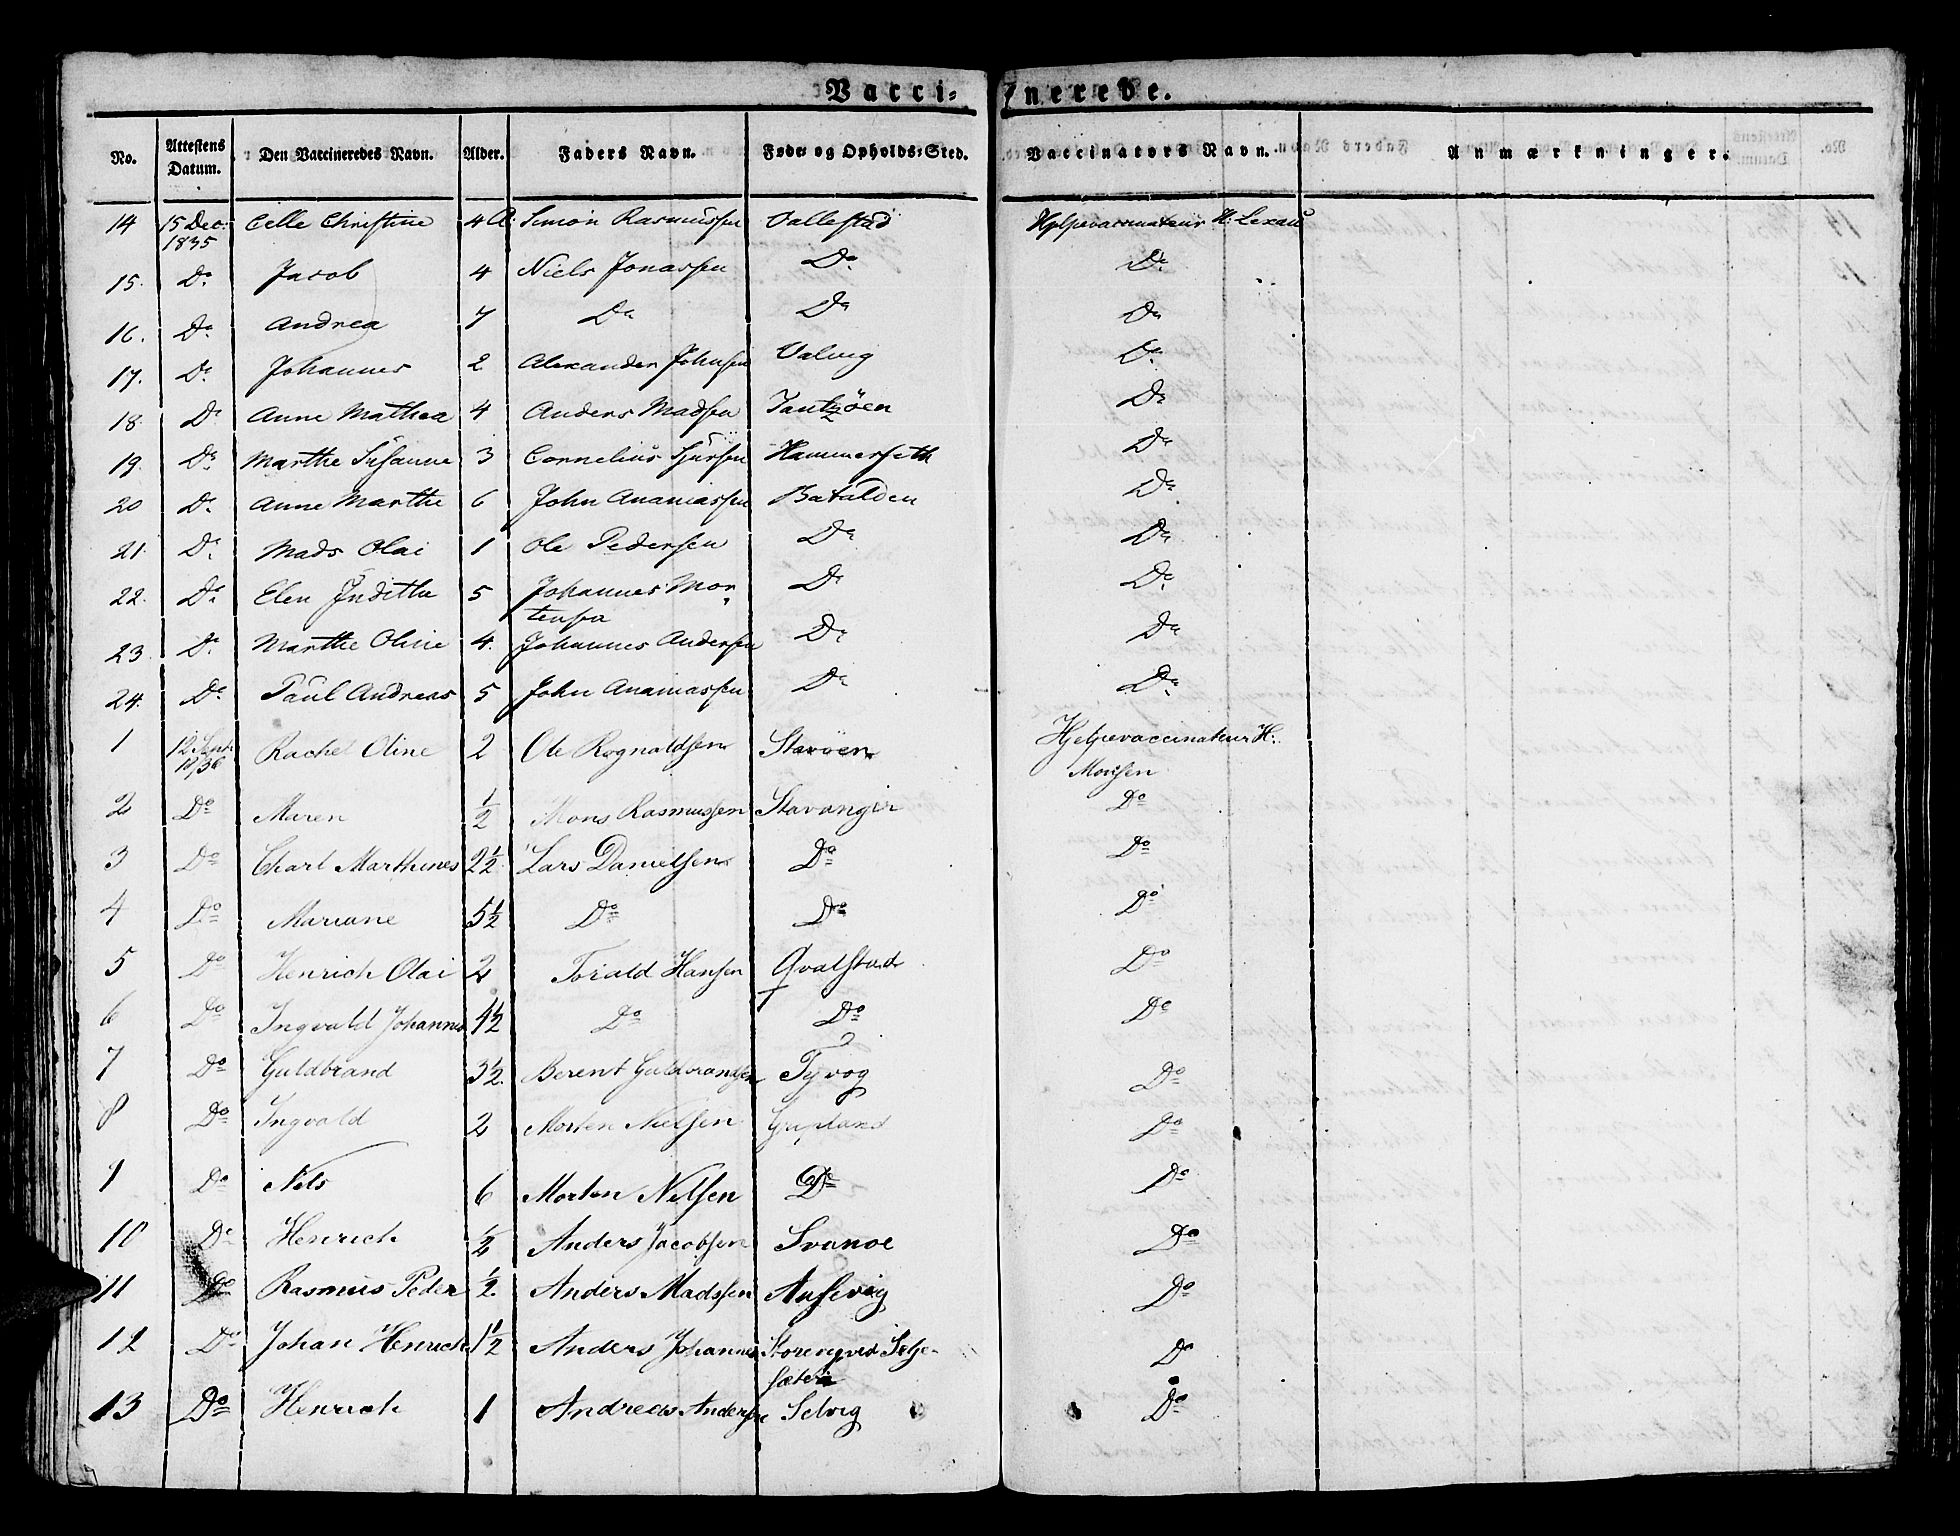 Vaccinerede.
No. Attestens Datum. Den Vaccineredes Navn. Alder. Faders Navn. Føde- og Opholds-Sted. Vaccinators Navn. Anmærkninger.
14 15 Dec: 1835 Celle Christine 4 A Simon Rasmussen Vallestad Hjelpevaccinateur H: Lexau
15. Do Jacob 4 Niels Jonassen Do Do
16. Do Andrea 7 Do Do Do
17. Do Johannes 2 Alexander Johnsen Valvig Do
18. Do Anne Mathea 4 Anders Madsen Do
19. Do Marthe Susanne 3 Cornelius Sjursen Hammerseth Do
20 Do Anne Marthe 6 John Ananiassen Batalden Do
21. Do Mads Olai 1 Ole Pedersen Do Do
22. Do Elen Jndithe 5 Johannes Mor- Do Do
tensen
23. Do Marthe Oline 4. Johannes Andersen Do Do
24. Do Paul Andreas 5 John Ananiassen Do Do
1 12 Sept 1836 Rachel Oline 2 Ole Rognaldsen Stavöen Hjelpevaccinateur H.
Monsen
2 Do Maren 1/2 Mons Rasmussen Stavangir Do
3 Do Charl Marthines 2 1/2 Lars Danielsen Do Do
4 Do Mariane 5 1/2 Do Do Do
5 Do Henrich Olai 2 Torald Hansen Qvalstad Do
6 Do Ingvald Johannes 4 1/2 Do Do Do
7 Do Guldbrand 3 1/2. Berent Guldbrandsen Tyvog Do
8 Do Ingvald 2 Morten Nielsen Do
9 Do Nils 6 Morten Nilsen Do Do
10 Do Henrich 1/2 Anders Jacobsen Svanoe Do
11 Do Rasmus Peder 1/2. Anders Madssen Ausevig Do
12 Do Johan Henrich 1 1/2 Anders Johannes Do
sæter
13 Do Henrich 1 Andreas Andersen Selvig Do